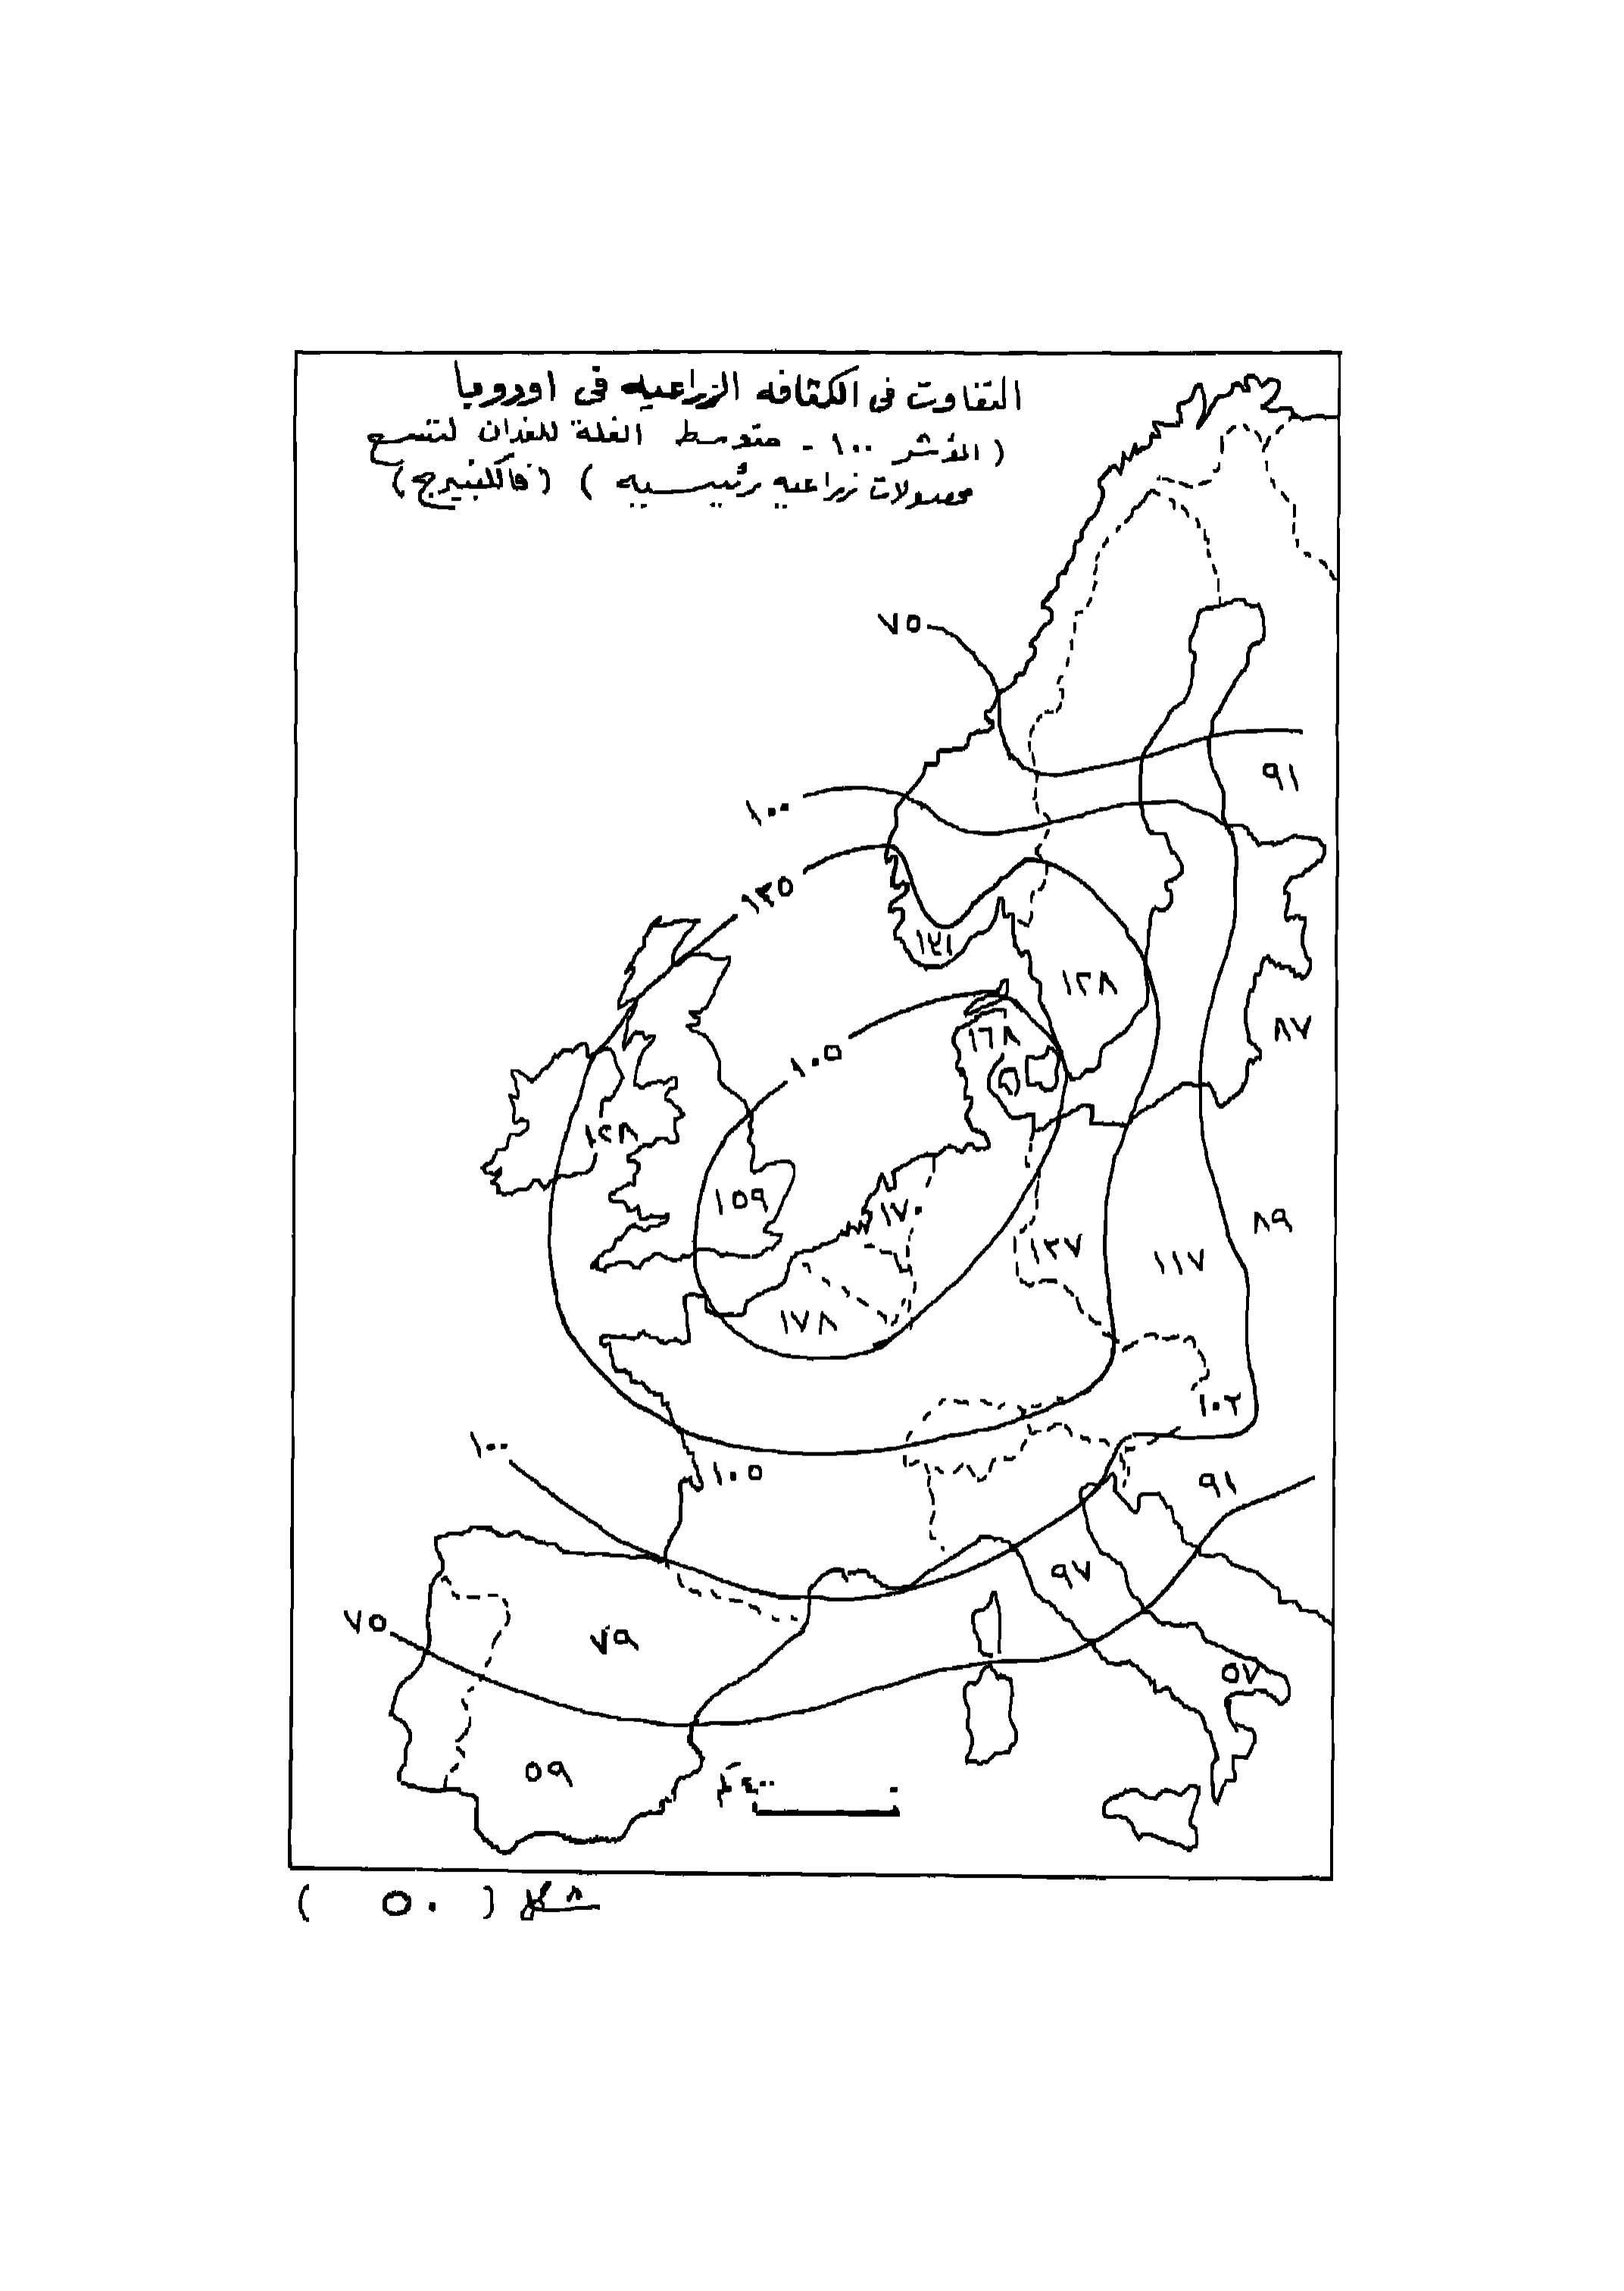 التفاوت فى الكثافه الزراعيه فى اوروبا
( المؤشر ١٠٠ - متوسط الغلة للفدان لتسع
محصولات زراعيه رئيسيه ) ( فالكنبيرج )
٧٥
٩١
١٠٠
١٢٥
١٢١
١٢٨
١٦٨
٨٧
١٠٥
١٢٨
١٥٩
١٧٠
١٢٧
١١٧
٨٩
١٧٨
١٠٢
١٠٠
١٠٥
٩١
٩٧
٧٥
٧٩
٥٧
٥٩
٤٠٠ كم ٠
شكل ( ٥٠ )